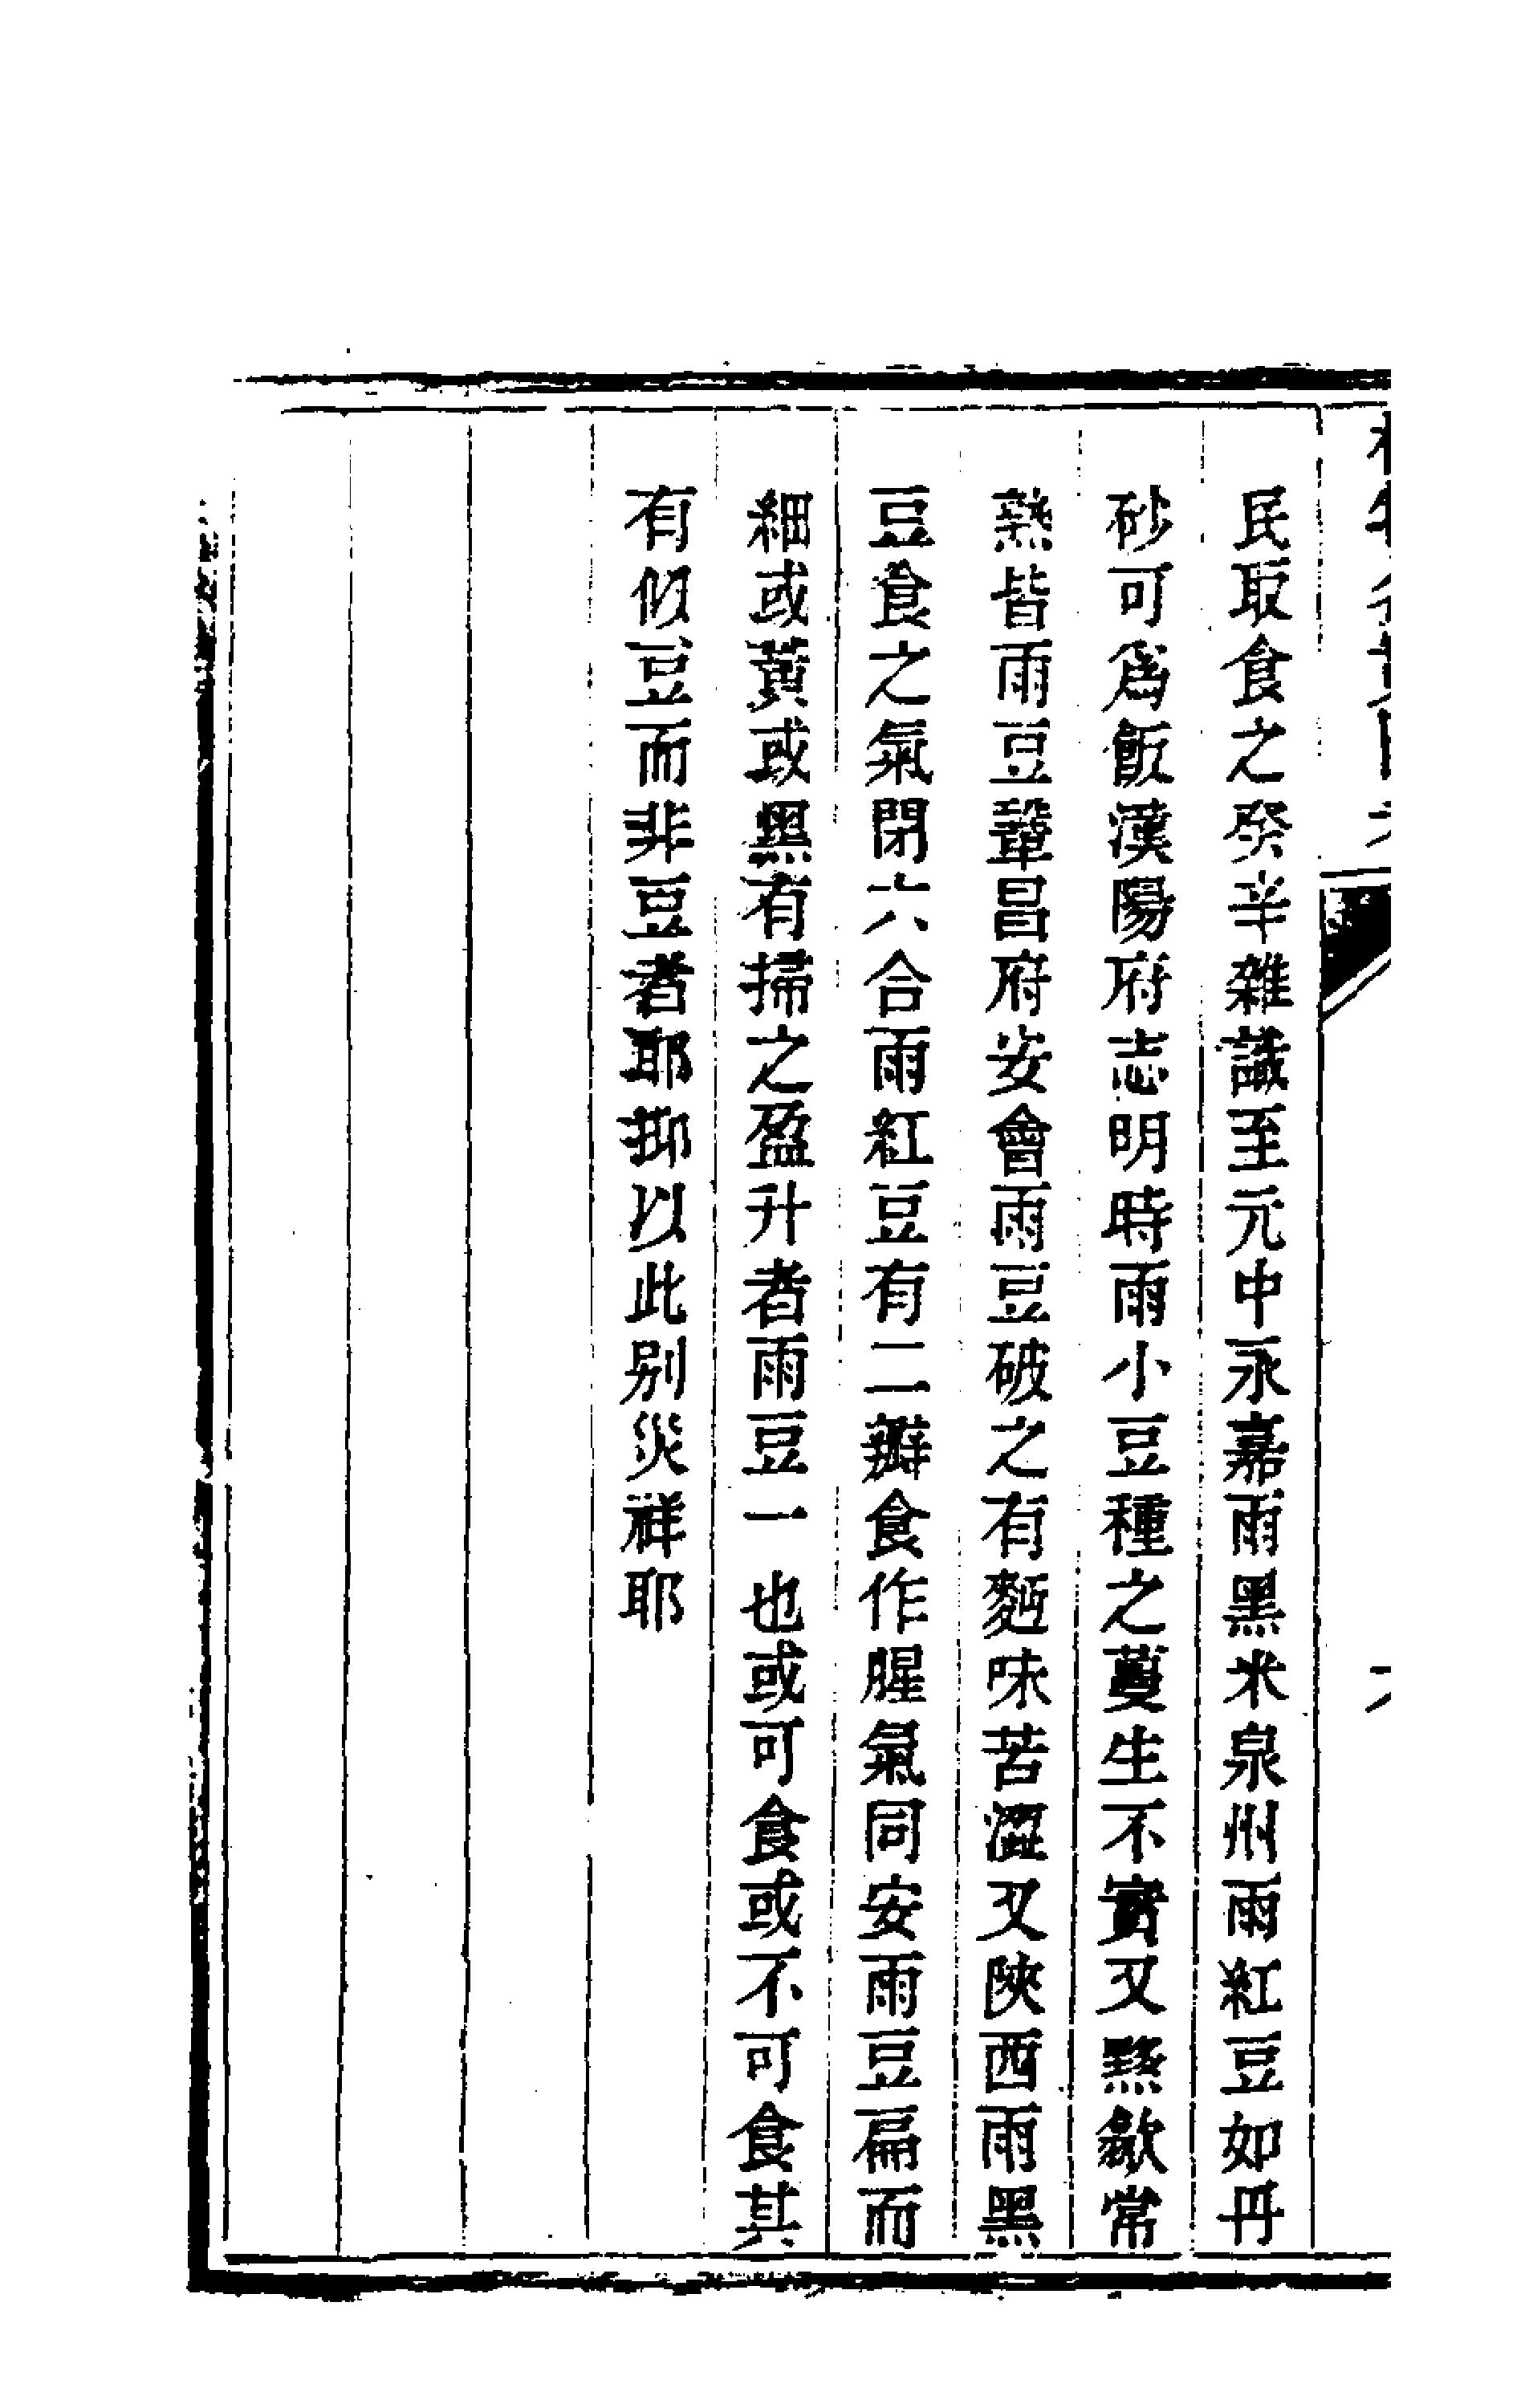 民取食之癸辛雜識至元中永嘉雨黑米泉州雨紅豆如丹
砂可爲飯漢陽府志明時雨小豆種之蔓生不實又黟歙常
熟皆雨豆鞏昌府安會雨豆破之有麪味苦澀又陝西雨黑
豆食之氣閉六合雨紅豆有二瓣食作腥氣同安雨豆扁而
細或黃或黑有掃之盈升者雨豆一也或可食或不可食其
有似豆而非豆者耶抑以此別災祥耶